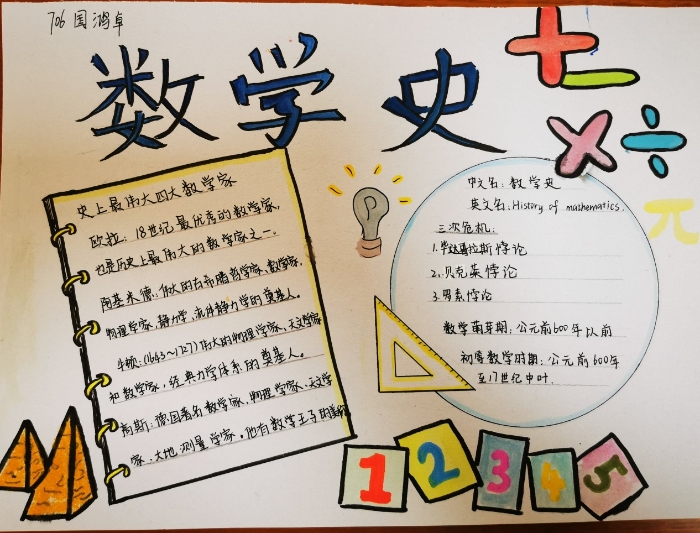 706 国鸿卓
数学史
史上最伟大四大数学家
欧拉：18世纪最优秀的数学家，
也是历史上最伟大的数学家之一。
阿基米德：伟大的古希腊哲学家、数学家、
物理学家，静力学、流体静力学的奠基人。
牛顿：(1643～1727)伟大的物理学家，天文学家
和数学家，经典力学体系的奠基人。
高斯：德国著名数学家，物理学家、天文学
家、大地测量学家。他有数学王子的美誉
中文名：数学史
英文名：History of mathematics.
三次危机：
1.毕达哥拉斯悖论
2.贝克莱悖论
3.罗素悖论
数学萌芽期：公元前600年以前
初等数学时期：公元前600年
至17世纪中叶.
+ −
× ÷
π
1 2 3 4 5